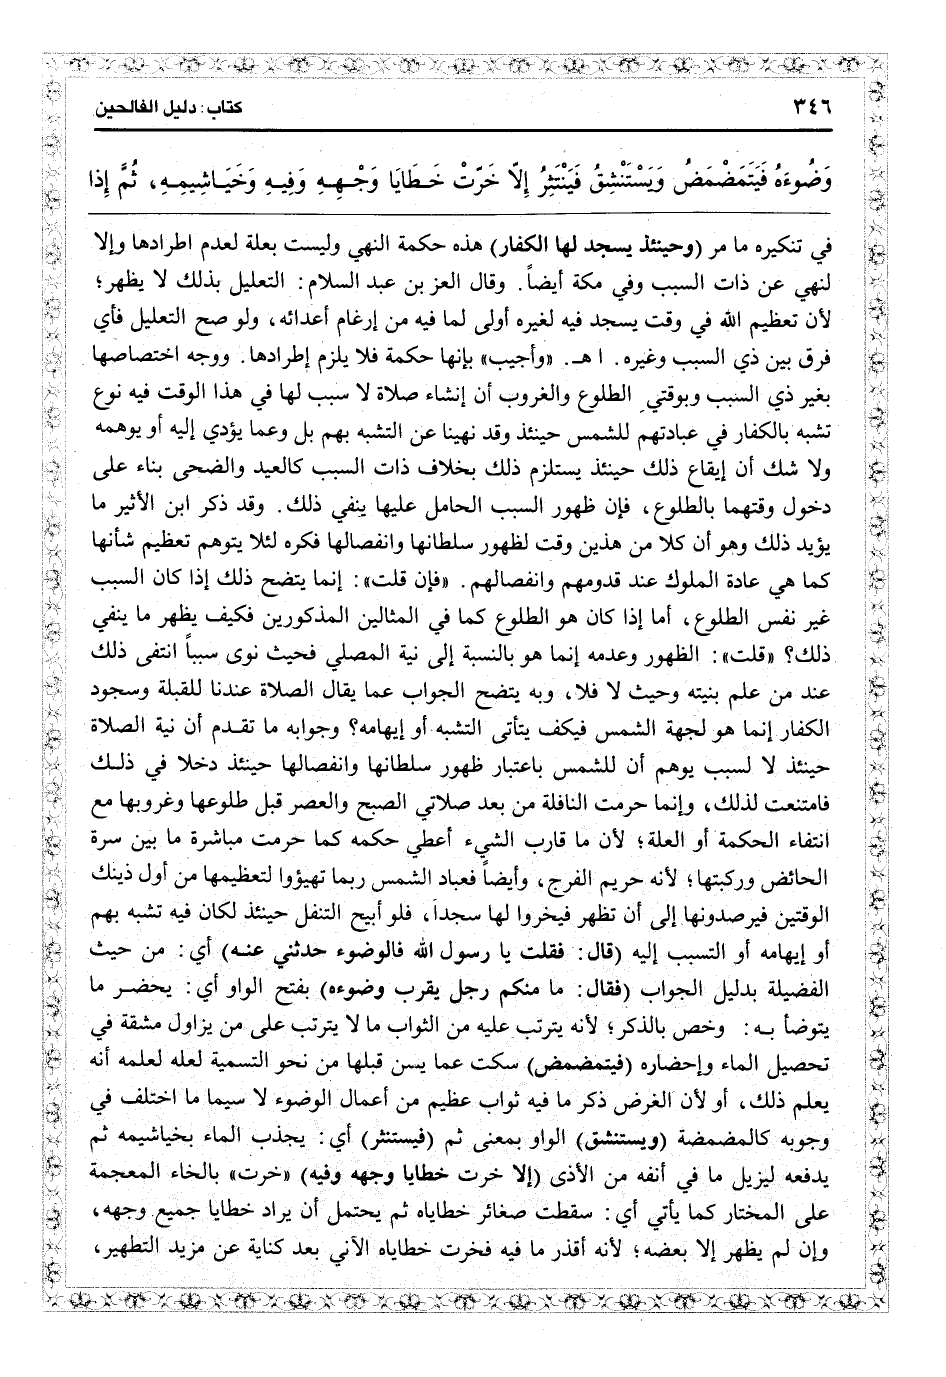 ٣٤٦
كتاب: دليل الفالحين
وَضُوءَهُ فَيَتَمَضْمَضُ وَيَسْتَنْشِقُ فَيَنْتَثِرُ إِلَّا خَرَّتْ خَطَايَا وَجْهِهِ وَفِيهِ وَخَيَاشِيمِهِ، ثُمَّ إِذَا
في تنكيره ما مر (وحينئذ يسجد لها الكفار) هذه حكمة النهي وليست بعلة لعدم اطرادها وإلا
لنهي عن ذات السبب وفي مكة أيضاً. وقال العز بن عبد السلام: التعليل بذلك لا يظهر؛
لأن تعظيم الله في وقت يسجد فيه لغيره أولى لما فيه من إرغام أعدائه، ولو صح التعليل فأي
فرق بين ذي السبب وغيره. اهـ. «وأجيب» بإنها حكمة فلا يلزم إطرادها. ووجه اختصاصها
بغير ذي السبب وبوقتي الطلوع والغروب أن إنشاء صلاة لا سبب لها في هذا الوقت فيه نوع
تشبه بالكفار في عبادتهم للشمس حينئذ وقد نهينا عن التشبه بهم بل وعما يؤدي إليه أو يوهمه
ولا شك أن إيقاع ذلك حينئذ يستلزم ذلك بخلاف ذات السبب كالعيد والضحى بناء على
دخول وقتهما بالطلوع، فإن ظهور السبب الحامل عليها ينفي ذلك. وقد ذكر ابن الأثير ما
يؤيد ذلك وهو أن كلا من هذين وقت لظهور سلطانها وانفصالها فكره لئلا يتوهم تعظيم شأنها
كما هي عادة الملوك عند قدومهم وانفصالهم. «فإن قلت»: إنما يتضح ذلك إذا كان السبب
غير نفس الطلوع، أما إذا كان هو الطلوع كما في المثالين المذكورين فكيف يظهر ما ينفي
ذلك؟ «قلت»: الظهور وعدمه إنما هو بالنسبة إلى نية المصلي فحيث نوى سبباً انتفى ذلك
عند من علم بنيته وحيث لا فلا، وبه يتضح الجواب عما يقال الصلاة عندنا للقبلة وسجود
الكفار إنما هو لجهة الشمس فيكف يتأتى التشبه أو إيهامه؟ وجوابه ما تقدم أن نية الصلاة
حينئذ لا لسبب يوهم أن للشمس باعتبار ظهور سلطانها وانفصالها حينئذ دخلا في ذلك
فامتنعت لذلك، وإنما حرمت النافلة من بعد صلاتي الصبح والعصر قبل طلوعها وغروبها مع
انتفاء الحكمة أو العلة؛ لأن ما قارب الشيء أعطي حكمه كما حرمت مباشرة ما بين سرة
الحائض وركبتها؛ لأنه حريم الفرج، وأيضاً فعباد الشمس ربما تهيؤوا لتعظيمها من أول ذينك
الوقتين فيرصدونها إلى أن تظهر فيخروا لها سجداً، فلو أبيح التنفل حينئذ لكان فيه تشبه بهم
أو إيهامه أو التسبب إليه (قال: فقلت يا رسول الله فالوضوء حدثني عنه) أي: من حيث
الفضيلة بدليل الجواب (فقال: ما منكم رجل يقرب وضوءه) بفتح الواو أي: يحضر ما
يتوضأ به: وخص بالذكر؛ لأنه يترتب عليه من الثواب ما لا يترتب على من يزاول مشقة في
تحصيل الماء وإحضاره (فيتمضمض) سكت عما يسن قبلها من نحو التسمية لعله لعلمه أنه
يعلم ذلك، أو لأن الغرض ذكر ما فيه ثواب عظيم من أعمال الوضوء لا سيما ما اختلف في
وجوبه كالمضمضة (ويستنشق) الواو بمعنى ثم (فيستنثر) أي: يجذب الماء بخياشيمه ثم
يدفعه ليزيل ما في أنفه من الأذى (إلا خرت خطايا وجهه وفيه) «خرت» بالخاء المعجمة
على المختار كما يأتي أي: سقطت صغائر خطاياه ثم يحتمل أن يراد خطايا جميع وجهه،
وإن لم يظهر إلا بعضه؛ لأنه أقذر ما فيه فخرت خطاياه الآتي بعد كناية عن مزيد التطهير،